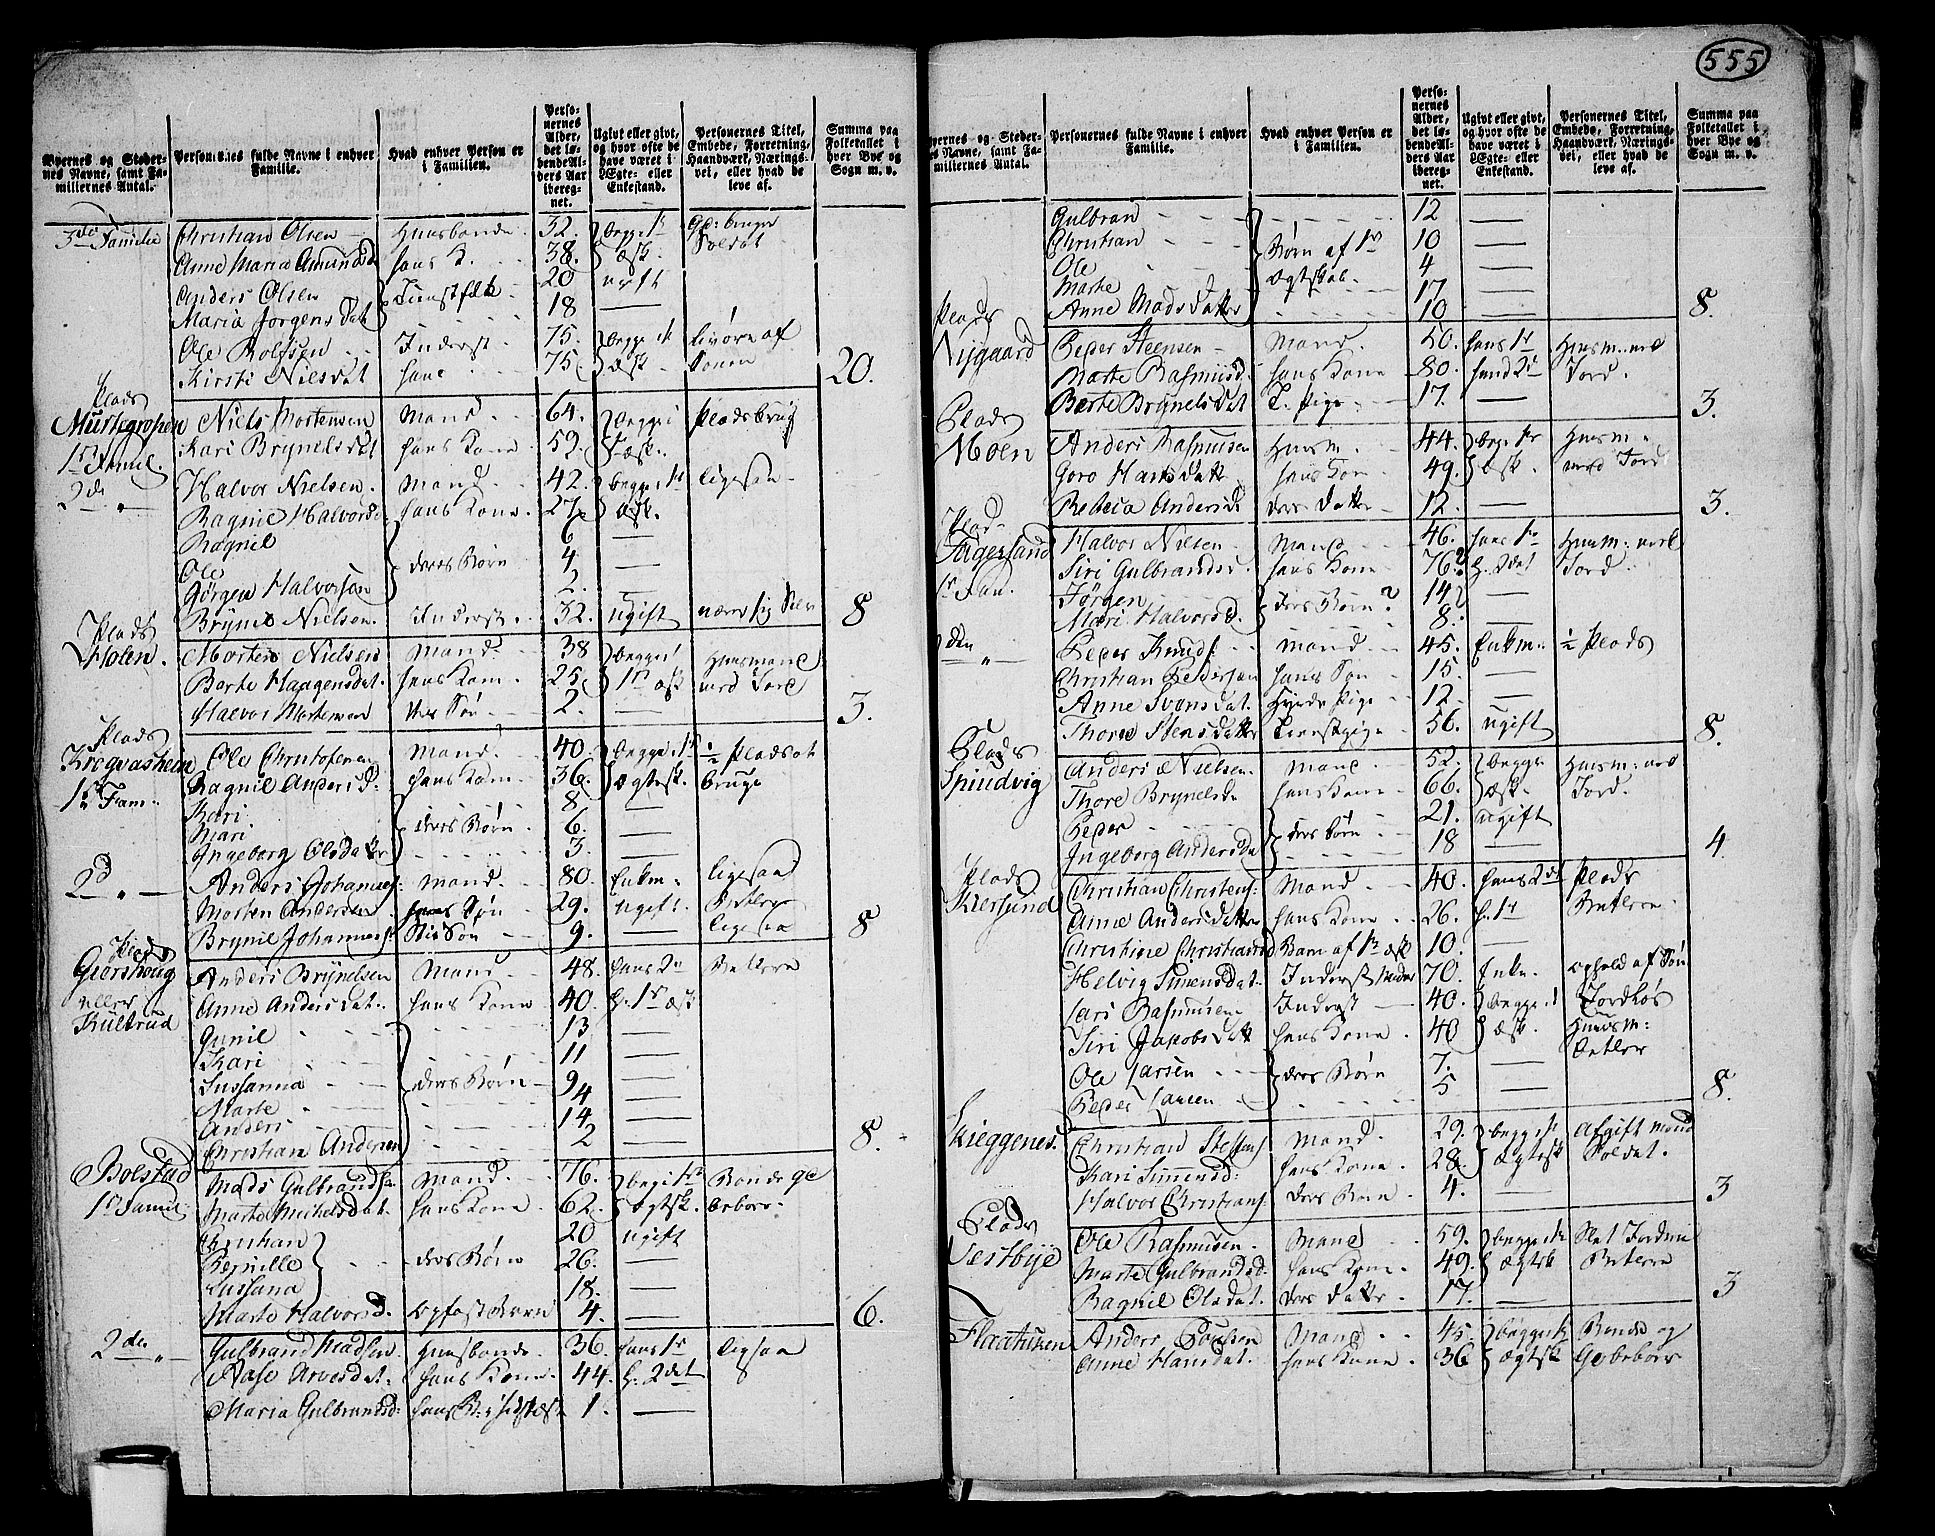 555
Byernes og Steder-
nes Navne, samt Fa-
milliernes Antal.
Personernes fulde Navne i enhver
Familie.
Hvad enhver Person er
i Familien.
Perso-
nernes
Alder,
det lø-
bende Al-
ders Aar
iberegnet.
Ugivt eller givt,
og hvor ofte de
have været i
Ægte- eller
Enkestand.
Personernes Titel,
Embede, Forretning,
Haandværk, Nærings-
vei, eller hvad de
leve af.
Summa paa
Folketallet i
hver Bye og
Sogn m. v.
3die Familie Christian Olsen Huusbonde 32. begge 1st Soldat
Anne Maria Amunds hans K. 38. Æsk.
Anders Olsen Tienstfolk 20 ugift
Maria Jørgensdat 18 —
Ole Rolfsen Inderst 75. begge 1st livøre af
Kirsti Nielsdat hans 75 Æsk. Sønen 20.
Plads
Niels Mortensen Mand 64. begge i Pladsbrug
1st Famil. Kari Brynelsdat hans Kone 59. Æsk.
2de „ Halvor Nielsen Mand 42. begge 1st ligesaa
Ragnil Halvorsd hans Kone 27.
Ragnil 6 —
Ole deres Børn 4 —
Jørgen Halvorsøn 2 —
Brynel Nielsen Inderst 32. ugift nærer sig selv 8
Plads
Holen. Morten Nielsen Mand 38 begge Huusmand
Berte Haagensdat. hans Kone 25. 1st Æsk med Jord
Halvor Mortensen deres Søn 2. — 3.
Plads
Kregvasheim Ole Christofersen Mand 40. begge 1st ½ Pladsens
1st Fam. Ragnil Andersd. hans Kone 36. Ægtesk. bruge
Kari 8 —
Mari deres Børn 6. —
Ingeborg Olsdatter 3. —
2d „ Anders Johannes: Mand. 80. Enkm. ligesaa
Morten Andersen hans Søn 29. ugift.
Brynil Johannes Søn 9. — ligesaa 8
Plads
Giershoug Anders Brynelsen Mand 48. hans 2den Betlere
eller Anne Andersdat. hans Kone 40. h. 1st Æsk
Kultrud Gunil 13 —
Kari 11 —
Sussanna deres Børn 9 —
Marte 4 —
Anders 14 —
Christian Andersen 2 — 8.
Bolstad Mads Gulbrandsen Mand 76. begge 1st Bonde
1st Famil. Marte Michelsdat. hans Kone 62. Ægtsk.
Christian 20 ugift
Pernille deres Børn 26. —
Sussana 18. —
Marte Halvorsd. Opfosterbarn 4. — 6.
2de „ Gulbrand Madsen Huusbonde 36. hans 1st ligesaa
Aase Arnesdat. hans Kone 44. h. 2det
Maria Gulbrandsd: hans B: 1. —
Byernes og Steder-
nes Navne, samt Fa-
milliernes Antal.
Personernes fulde Navne i enhver
Familie.
Hvad enhver Person er
i Familien.
Perso-
nernes
Alder,
det lø-
bende Al-
ders Aar
iberegnet.
Ugivt eller givt,
og hvor ofte de
have været i
Ægte- eller
Enkestand.
Personernes Titel,
Embede, Forretning,
Haandværk, Nærings-
vei, eller hvad de
leve af.
Summa paa
Folketallet i
hver Bye og
Sogn m. v.
Gulbran 12 —
Christian Børn af 1st 10 —
Ole Ægtskab. 4 —
Marte 17 —
Anne Madsdatter 10 — 8.
Plads
Nygaard Peder Steensen Mand. 50. hans 1st Huusm: med
Marte Rasmusd. hans Kone 80. hend 2de Jord.
Berte Brynelsdat T. Pige 17. — 3.
Plads
Moen Anders Rasmusen Huusm. 44. begge 1st Huusm.
Goro Hansdatt hans Kon 49. Æsk. med Jord
Rebeca Andersd. deres Datter 12. — 3.
Plad-
Fagersand Halvor Nielsen Mand 46. hans 1st Huusm: med
1st Fam. Siri Gulbrandsd. hans Kone 76? h. 2det Jord.
Jørgen deres Børn? 14? —
Mari Halvorsd. 8. —
2den „ Peder Knuds Mand 45. Enkm: ½ Plads
Christian Pedersen hans Søn 15. —
Anne Svensdat. Hyrde Pige 12. —
Thore Stensdatter Tienstpige 56. ugift 8.
Plads
Spindvig Anders Nielsen Mand 52. begge Huusm: med
Thore Brynelsda hans Kone 66. Æsk. Jord.
Peder deres Børn 21. ugift
Ingeborg Andersda 18 — 4.
Plads
Kiersund Christian Christens: Mand 40. hans 2det Plads
Anne Andersdatter hans Kone 26. h. 1st Betlere
Christine Christiansd Barn af 1st Æsk 10. —
Helvig Simensdat. Inderst Moder 70. Enke. ophold af Søn
Lars Rasmusen Inderst 40. begge 1st Jordløs
Siri Jakobsdatt hans Kone 40 Æsk. Huusm:
Ole Larsen deres Børn 7. — Betler
Peder Larsen 5 — 8.
Skieggenes. Christian Steffens Mand. 29. begge 1st Afgift Mand
Kari Simensd: hans Kone 28. Ægtesk Soldat.
Halvor Christians deres Børn 4. — 3
Plads
Vestbye Ole Rasmusen. Mand 59. begge 1st
Marte Gulbrandsd. hans Kone 49. Ægtsk Betlere
Ragnil Olsdat. deres Datter 17. — 3
Anders Mand 45 begge 1st Bonde og
Anne Hansdat. hans Kone. 36 Ægtsk Gdebeboer